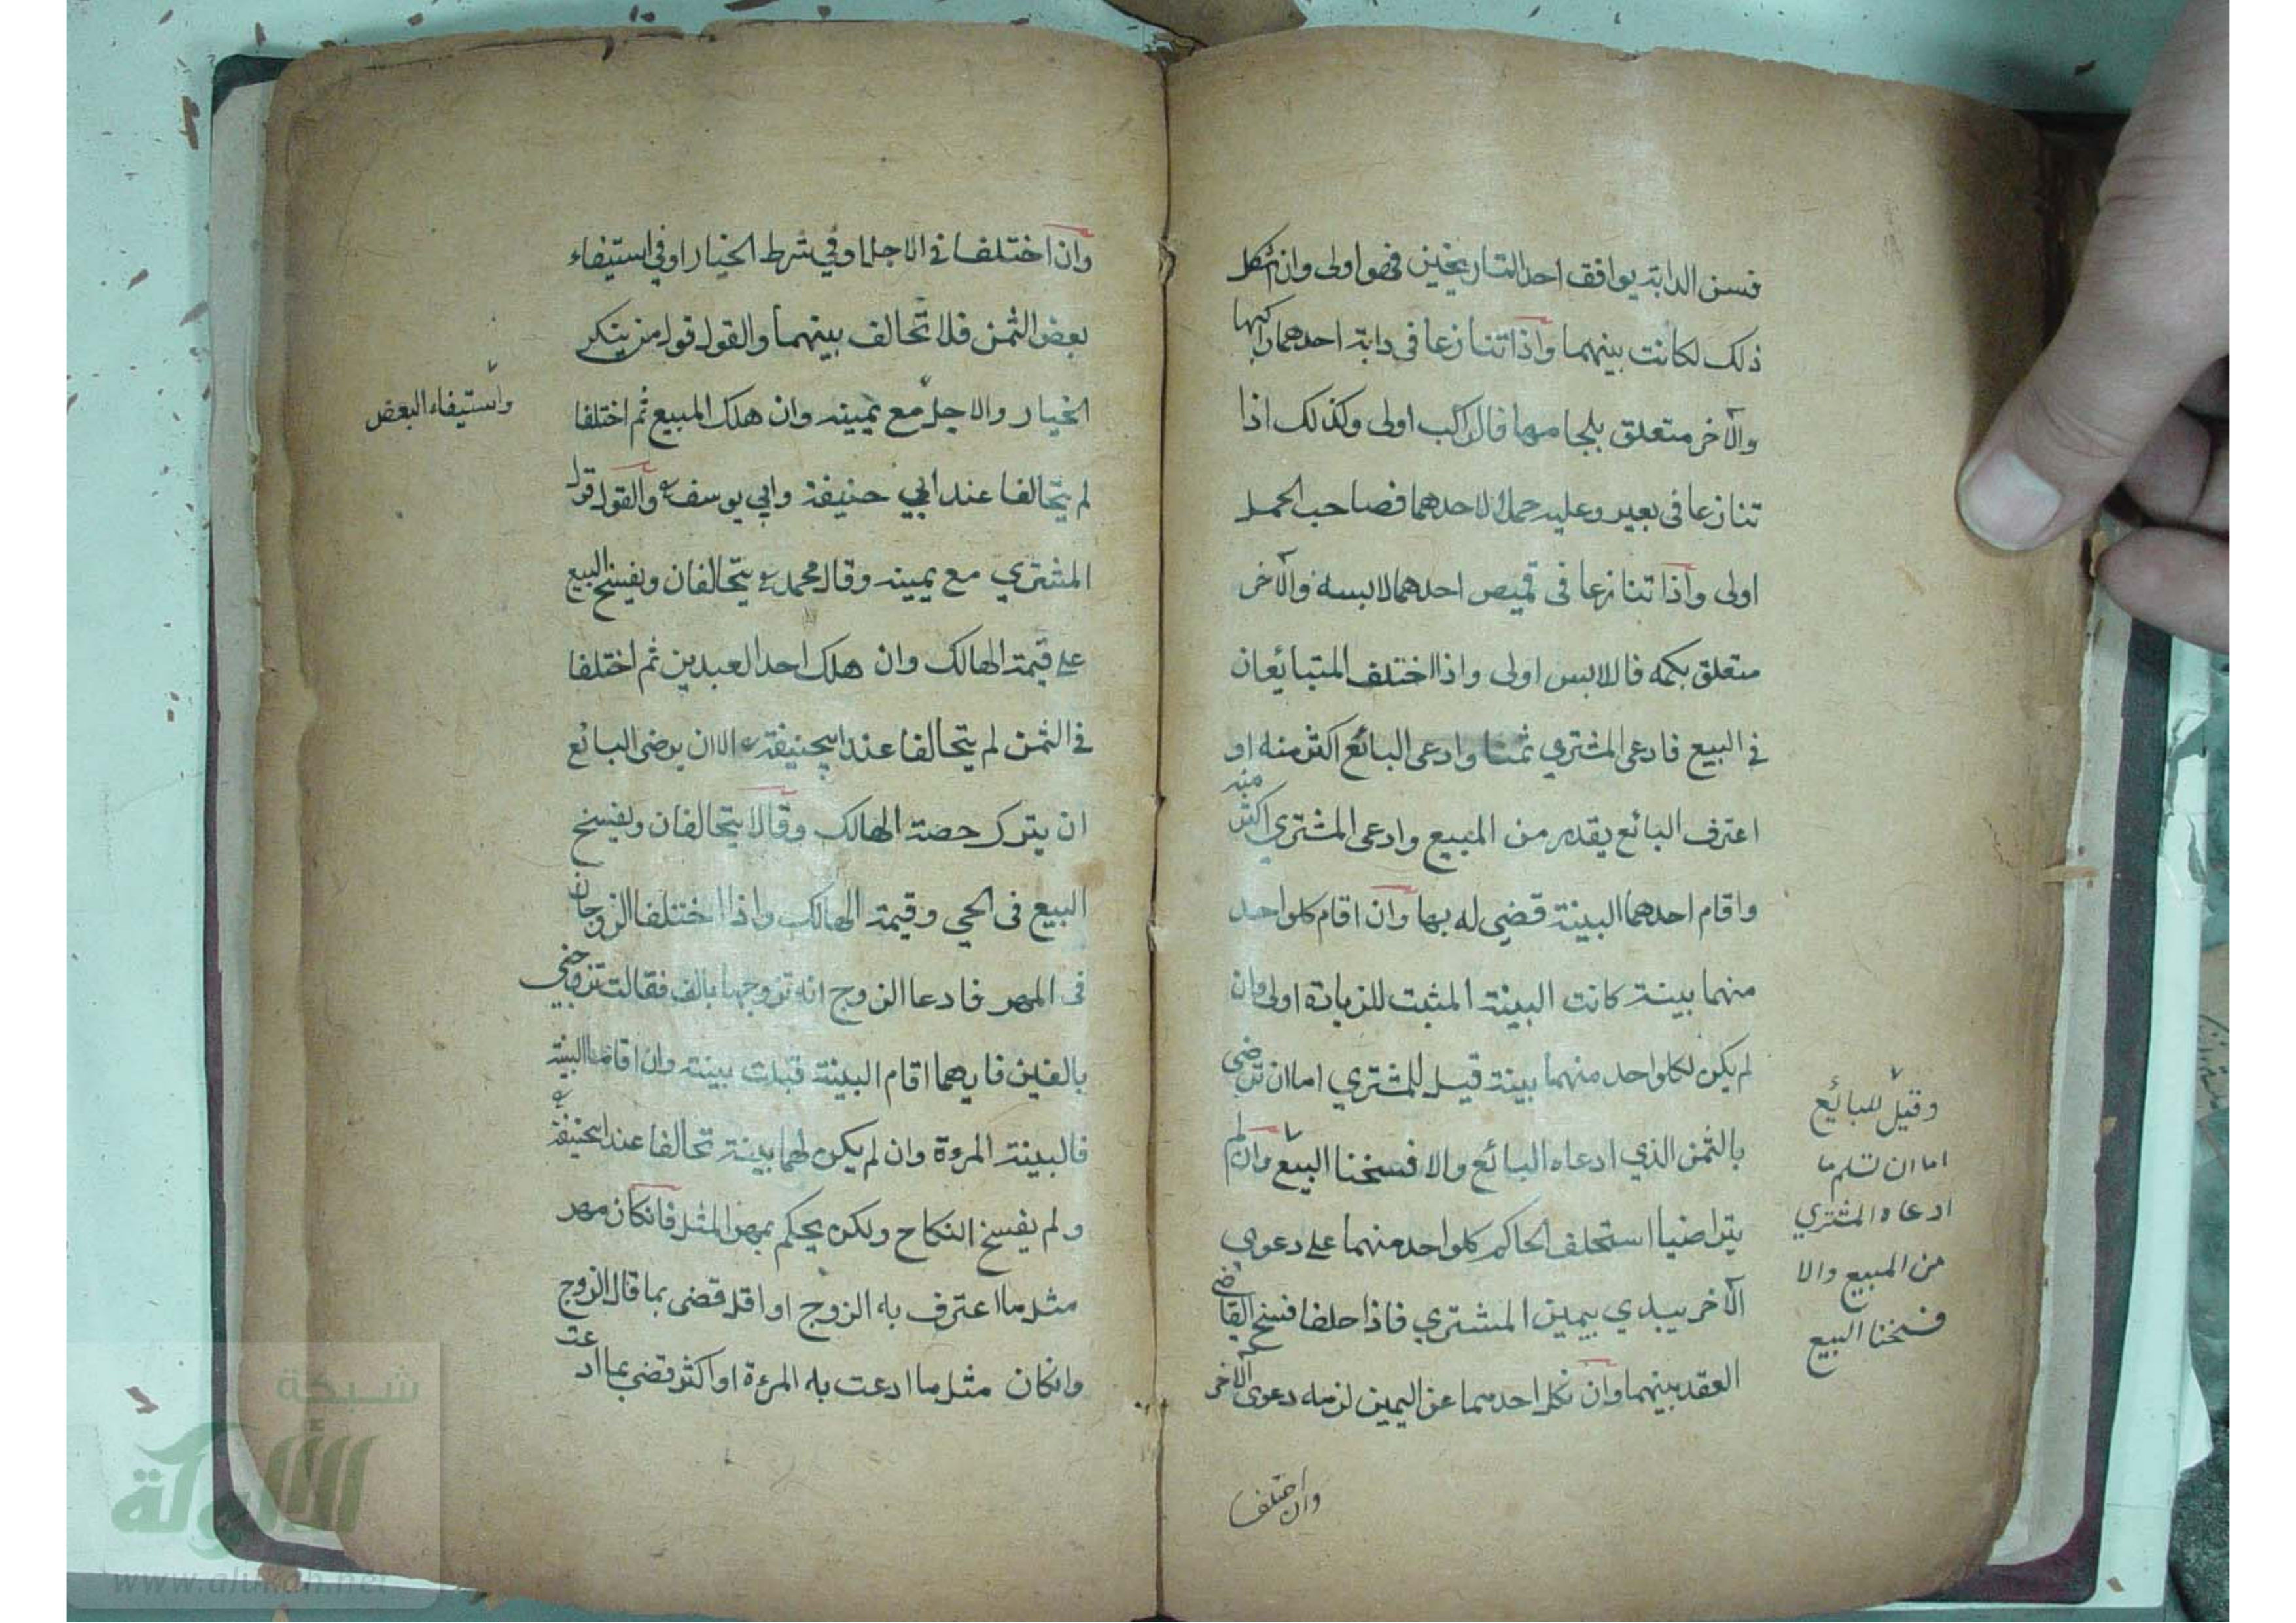 فسن الدابة يوافق احد التاريخين فهو اولى وان اشكل
ذلك لكانت بينهما واذا تنازعا فى دابة احدهما راكبها
والآخر متعلق بلجامها فالراكب اولى وكذلك اذا
تنازعا فى بعير وعليه حمل لاحدهما فصاحب الحمل
اولى واذا تنازعا فى قميص احدهما لابسه والآخر
متعلق بكمه فاللابس اولى واذا اختلف المتبائعان
فى البيع فادعى المشتري ثمنا وادعى البائع اكثر منه او
اعترف البائع بقدر من المبيع وادعى المشتري اكثر منه
واقام احدهما البينة قضي له بها وان اقام كلواحد
منهما بينة كانت البينة المثبت للزيادة اولى وان
لم يكن لكلواحد منهما بينة قيل للمشتري اما ان ترضى
بالثمن الذي ادعاه البائع والا فسخنا البيع وان لم
يتراضيا استحلف الحاكم كلواحد منهما على دعوى
الآخر يبدي بيمين المشتري فاذا حلفا فسخ القاضي
العقد بينهما وان نكل احدهما عن اليمين لزمه دعوى الآخر
وقيل للبائع
اما ان تسلم ما
ادعاه المشتري
من المبيع والا
فسخنا البيع
وان اختلف
وان اختلفا فى الاجل او في شرط الخيار او في استيفاء
بعض الثمن فلا تحالف بينهما والقول قول من ينكر
الخيار والاجل مع يمينه وان هلك المبيع ثم اختلفا
لم يتحالفا عند ابي حنيفة وابي يوسف والقول قول
المشتري مع يمينه وقال محمد يتحالفان ويفسخ البيع
على قيمة الهالك وان هلك احد العبدين ثم اختلفا
فى الثمن لم يتحالفا عند ابيحنيفة الا ان يرضى البائع
ان يترك حصة الهالك وقالا يتحالفان ويفسخ
البيع فى الحي وقيمة الهالك واذا اختلفا الزوجان
فى المهر فادعا الزوج انه تزوجها بالف فقالت تزوجني
بالفين فايهما اقام البينة قبلت بينته وان اقاما البينة
فالبينة المرءة وان لم يكن لهما بينة تحالفا عند ابيحنيفة
ولم يفسخ النكاح ولكن يحكم بمهر المثل فانكان مهر
مثل ما اعترف به الزوج او اقل قضى بما قال الزوج
وانكان مثل ما ادعت به المرءة او اكثر قضى بما ادعت
واستيفاء البعض
شبكة
الألوكة
www.alukah.net